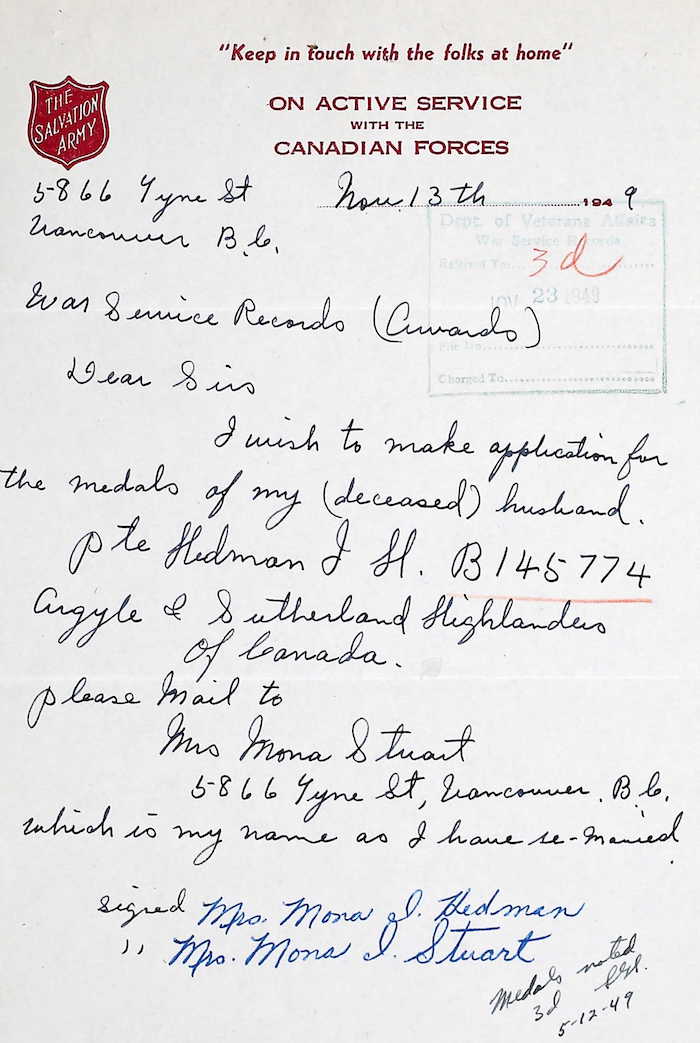 "Keep in touch with the folks at home"
THE
SALVATION
ARMY
ON ACTIVE SERVICE
WITH THE
CANADIAN FORCES
5866 Tyne St Nov. 13th 1949
Vancouver B.C.
Dept. of Veterans Affairs
War Service Records
Referred To... 3d
NOV 23 1949
File No.
Charged To
War Service Records (Awards)
Dear Sirs
I wish to make application for
the medals of my (deceased) husband.
Pte Hedman J H. B145774
Argyle & Sutherland Highlanders
Of Canada.
please Mail to
Mrs Mona Stuart
5866 Tyne St, Vancouver. B.C.
which is my name as I have re-married
signed Mrs. Mona I. Hedman
" Mrs. Mona I. Stuart
Medals noted
3d
5-12-49